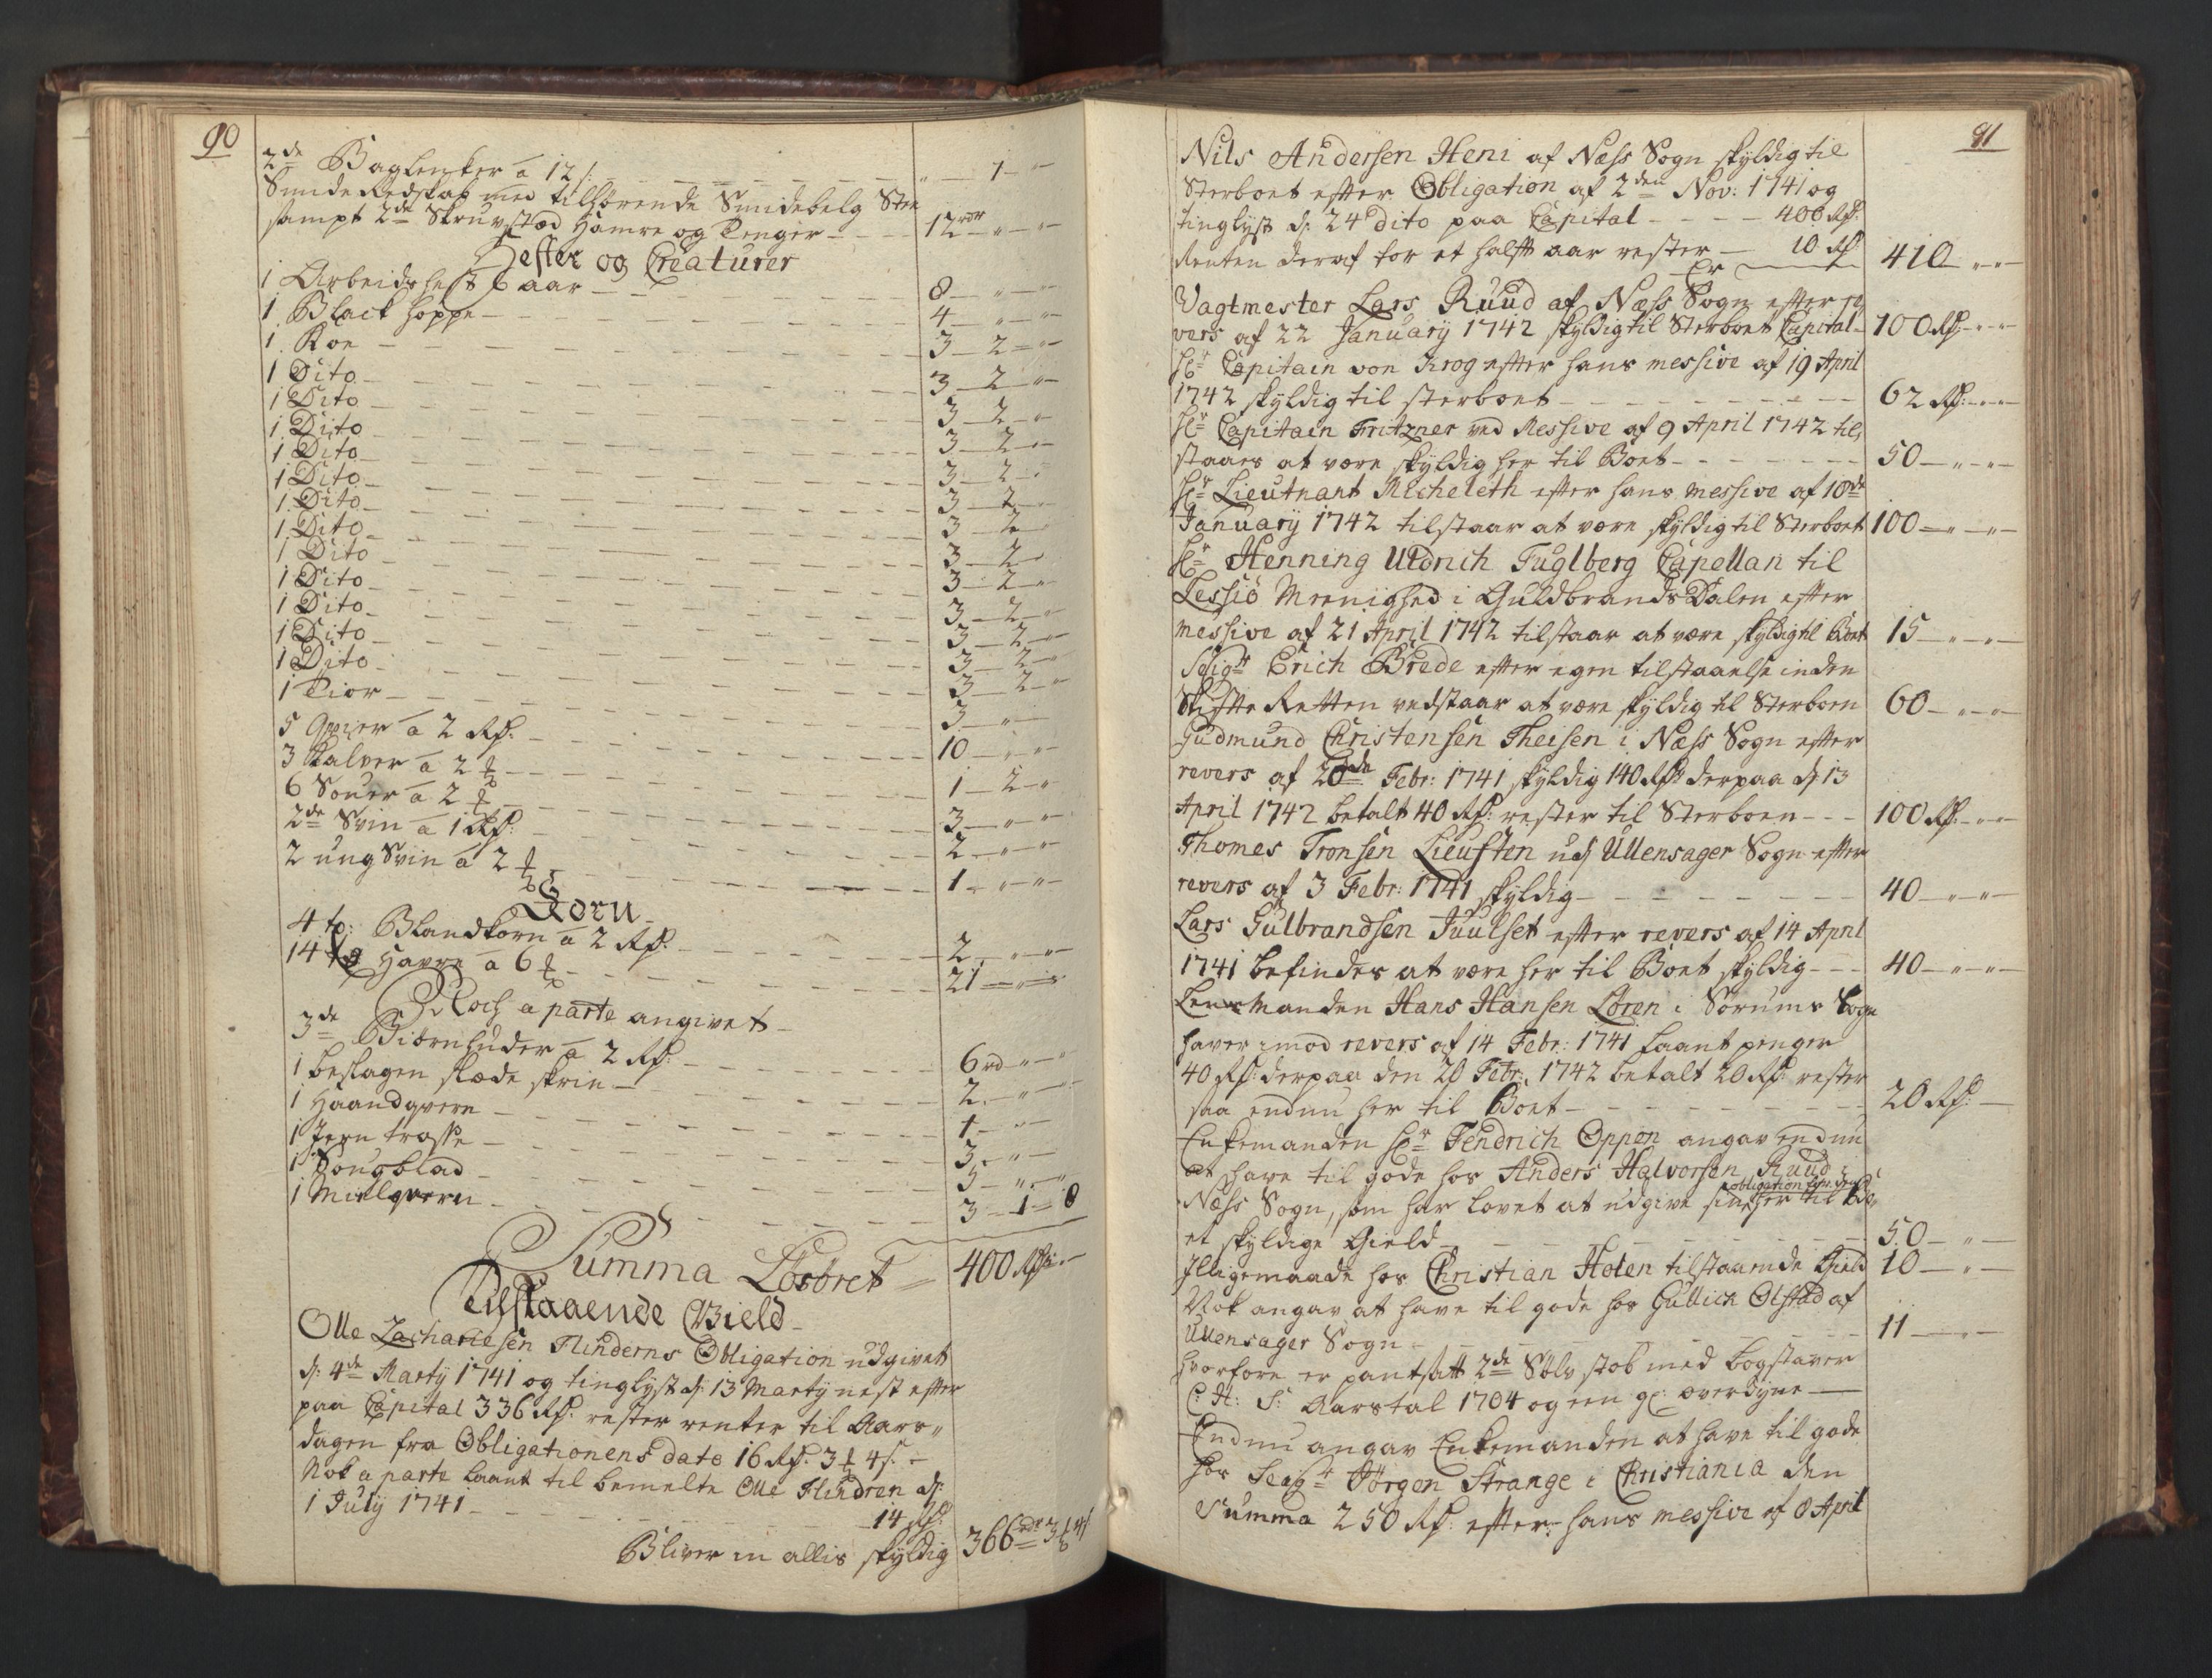 90
2de Baglenker a 12 s: „ — 1 — „
Smide Redskab med tilhørende Smidebelg Ste
sampt 2de Skruvstæd Hamre og Tenger — 12 rdr „ — „
Hester og Creaturer
1 Arbeidshest 6 aar — 8 — „ — „
1 Black Hoppe — 4 — „ — „
1 Koe — 3 — 2 — „
1 Dito — 3 — 2 — „
1 Dito — 3 — 2 — „
1 Dito — 3 — 2 — „
1 Dito — 3 — 2 — „
1 Dito — 3 — 2 — „
1 Dito — 3 — 2 — „
1 Dito — 3 — 2 — „
1 Dito — 3 — 2 — „
1 Dito — 3 — 2 — „
1 Dito — 3 — 2 — „
1 Dito — 3 — 2 — „
1 Dito — 3 — 2 — „
1 Tior — 3 — „ —
5 Qvier a 2 Rd: — 10 — „ — „
3 Kalver a 2 ⸹ — 1 — 2 — „
6 Souer a 2 ⸹ — 3 — „ — „
2de Svin a 1 Rd: — 2 — „ — „
2 ung Svin a 2 ⸹ — 1 — „ — „
Korn
4 tø: Blandkorn a 2 Rd: — 2 — „ — „
14 tø Havre a 6 ⸹ — 21 — „ — „
Noch a parte angivet
3de Biørnhuder a 2 Rd: — 6 rd „ — „
1 beslagen slæde skrin — 2 — „ —
1 Haandqvern — 1 — „ —
1 Jern trosse — 3 — „ —
1 Sougblad — 3 — „ — „
1 Mielqvern — 3 — 1 — 8
Summa Løsøret — 400 Rd: —
Tilstaaende Gield
Olle Zachariesen Flinderns Obligation udgivet
d: 4de Marty 1741 og tinglyst d: 13 Marty nest efter
paa Capital 336 Rd: rester renter til Aars„
dagen fra Obligationens dato 16 Rd: 3 ⸹ 4 s: —
Nok a parte laant til bemelte Olle Flindren d:
1 July 1741 — 14 Rd:
Bliver in allis skyldig 366 rdr 3 ⸹ 4 s
91
Nils Andersen Heni af Næss Sogn skyldig til
Sterboet efter Obligation af 2den Nov: 1741 og
tinglyst d: 24 dito paa Capital — 400 Rd:
Renten deraf for et halft aar rester — 10 Rd
Er — 410 — „ — „
Vagtmester Lars Ruud af Næss Sogn efter re
vers af 22 January 1742 skyldig til Sterboet Capital — 100 Rd: — „ —
Hr Capitain von Krog efter hans messive af 19 April
1742 skyldig til sterboet — 62 Rd: — „ —
Hr Capitain Fritzner ved Messive af 9 April 1742 til„
staaes at være skyldig her til Boet — 50 — „ — „ —
Hr Lieutnant Micheleth efter hans messive af 18de
January 1742 tilstaar at være skyldig til Sterboet 100 — „ — „ —
Hr Henning Uldrich Fuglberg Capellan til
Lessiø Menighed i GuldbrandsDalen efter
messive af 21 April 1742 tilstaar at være skyldig til Boet 15 — „ — „ —
Seigr Erich Brede efter egen tilstaaelse inden
Skifte Retten vedstaar at være skyldig til Sterboen 60 — „ — „ —
Gudmund Christensen Theisen i Næss Sogn efter
revers af 28de Febr: 1741 skyldig 140 Rd: derpaa d: 13
April 1742 betalt 40 Rd: rester til Sterboen — 100 Rd: — „ —
Thomes Tronsen Lieusten udj Ullensager Sogn efter
revers af 3 Febr: 1741 skyldig — 40 — „ — „ —
Lars Gulbrandsen Juulset efter revers af 14 April
1741 befindes at være her til Boet skyldig — 40 — „ — „ —
Lensmanden Hans Hansen Løren i Sørums Sogn
haver imod revers af 14 Febr: 1741 laant penger
40 Rd: derpaa den 20 Febr: 1742 betalt 20 Rd: rester
saa endnu her til Boet — 20 Rd: —
Enkemanden Hr Fendrich Oppen angav endnu
at have til gode hos Anders Halvorsen Ruud i
obligation
Næss Sogn, som har lovet at udgive sin her til Bo„
et skyldige Gield — 50 — „ —
Jlligemaade hos Christian Holen tilstaaende Gield 10 — „ —
Nok angav at have til gode hos Gullich Olstad af
Ullensager Sogn — 11 — „ —
hvorfore er pantsatt 2de Sølv stob med bogstaver
C: H: S: Aarstal 1704 og een gl: overdyne —
Endnu angav Enkemanden at have til gode
hos Seigr Jørgen Strange i Christiania den
Summa 250 Rd: efter hans messive af 8 April